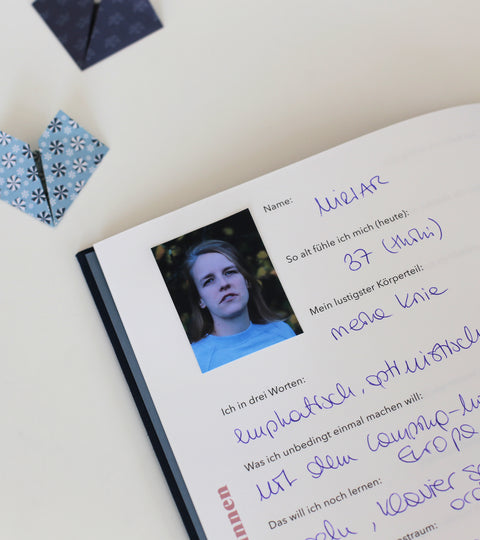 Name:
So alt fühle ich mich (heute):
37 (thihi)
Mein lustigster Körperteil:
meine Knie
Ich in drei Worten:
emphatisch, optimistisch
Was ich unbedingt einmal machen will:
Mit dem Camping-
Europa
Das will ich noch lernen:
Klavier